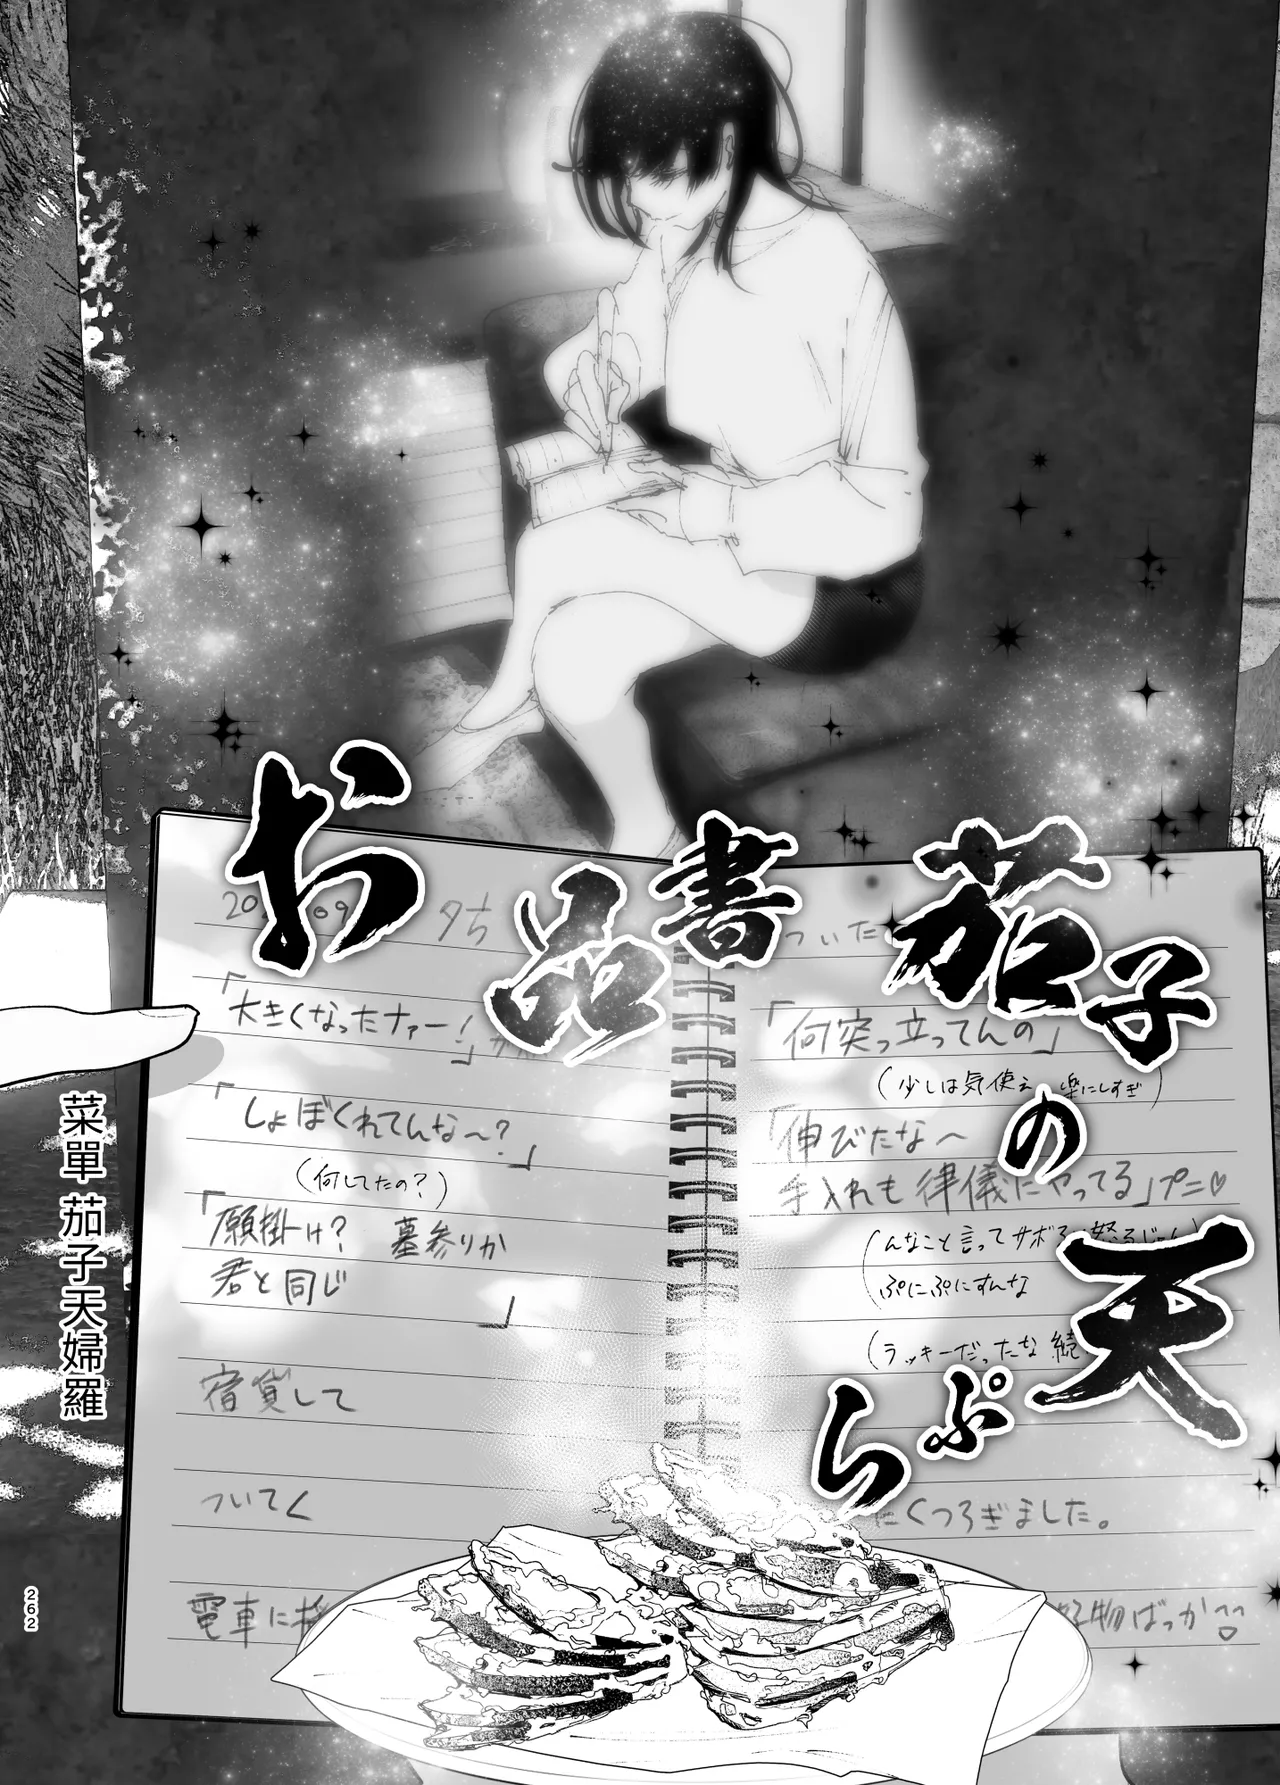 お品書
茄子の
天ぷら
菜單 茄子天婦羅
「大きくなったナァー！」
「しょぼくれてんな〜？」
(何してたの？)
「願掛け？ 墓参りか
君と同じ
」
宿貸して
ついてく
電車に
ついた
「何突っ立ってんの」
(少しは気使え 楽にしすぎ)
「伸びたな〜
手入れも律儀にやってる」プニ♡
(んなこと言ってサボる 怒るじゃん)
(ぷにぷにすんな
(ラッキーだったな 続
にくつろぎました。
好物ばっか
262